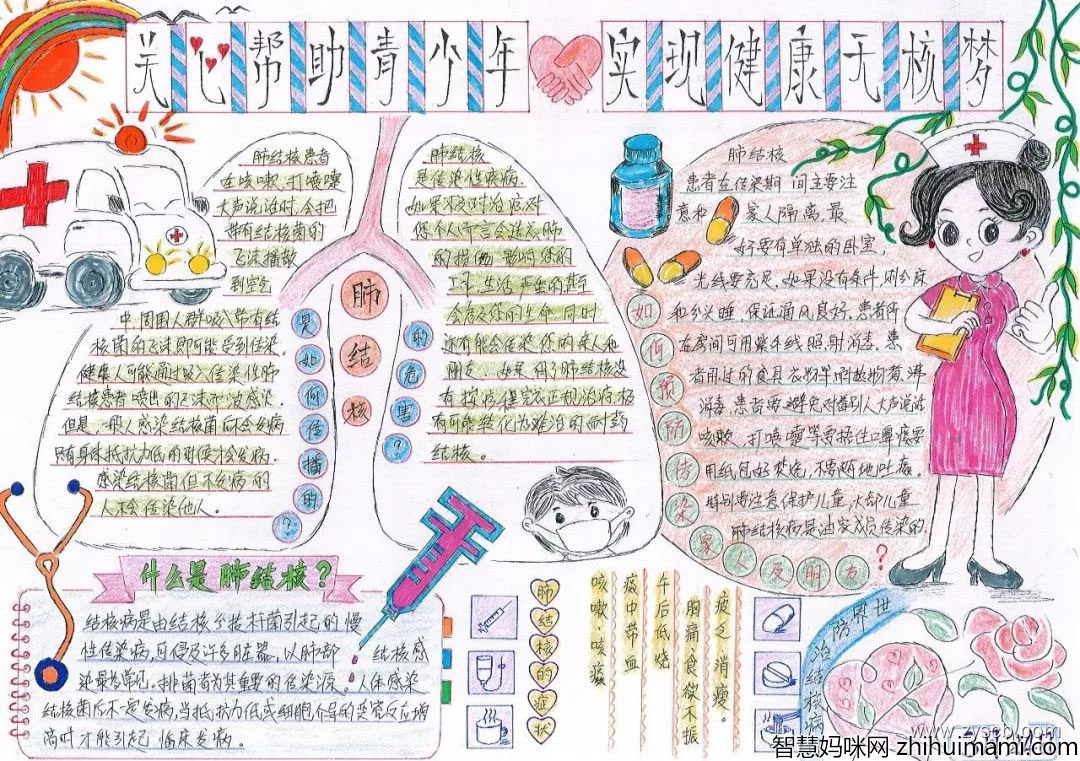 关心帮助青少年 实现健康无核梦
肺结核患者
在咳嗽、打喷嚏
大声说话时，会把
带有结核菌的
飞沫播散
到空气
中，周围人群吸入带有结
核菌的飞沫即可能受到传染。
健康人可能通过吸入传染性肺
结核患者喷出的飞沫而被感染。
但是一般人感染结核菌后不会发病
只有身体抵抗力低的时候才会发病。
感染结核菌但不发病的
人不会传染他人。
肺结核
是如何传播的？
的危害？
肺结核
是传染性疾病，
如果不及时治疗对
您个人而言会造成肺
的损伤，影响您的
工作、生活，严重的甚至
会危及您的生命，同时
还有可能会传染您的亲人和
朋友。如果得了肺结核没
有按治疗
有可能转化为难治的耐药
结核。
肺结核
患者在传染期间主要注
意和家人隔离，最
好要有单独的卧室，
光线要充足，如果没有条件，则分床
和分头睡，保证通风良好，患者所
在房间可用紫外线照射消毒，患
者用过的食具、衣物等耐煮物煮沸
消毒，患者要避免对着别人大声说话
咳嗽、打喷嚏等要捂住口罩，痰要
用纸包好焚烧，不要随地吐痰。
特别要注意保护儿童，大部儿童
肺结核病是由家成员传染的。
如何预防传染家人及朋友？
什么是肺结核？
结核病是由结核分枝杆菌引起的慢
性传染病，可侵及许多脏器，以肺部结核感
染最为常见。排菌者为其重要的传染源。人体感染
结核菌后不一定发病，当抵抗力低或细胞介导的变态反应增
高时才能引起临床发病。
肺结核的症状
咳嗽、咳痰
痰中带血
午后低烧
胸痛、食欲不振
疲乏、消瘦。
世界防治结核病
www.zyscbj.com
智慧妈咪网 zhihuimami.com